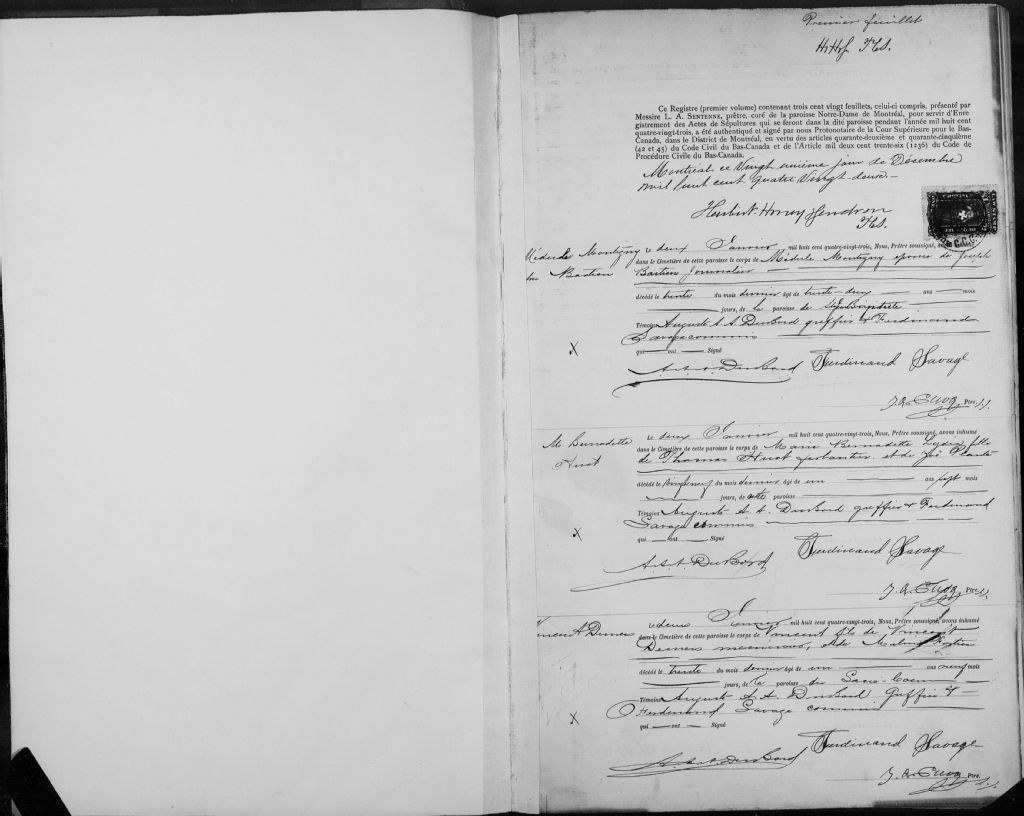 Premier feuillet
HHG. P.C.S.
Ce Registre (premier volume) contenant trois cent vingt feuillets, celui-ci compris, présenté par
Messire L. A. SENTENNE, prêtre, curé de la paroisse Notre-Dame de Montréal, pour servir d'Enre
gistrement des Actes de Sépultures qui se feront dans la dite paroisse pendant l'année mil huit cent
quatre-vingt-trois, a été authentiqué et signé par nous Protonotaire de la Cour Supérieure pour le Bas-
Canada, dans le District de Montréal, en vertu des articles quarante-deuxième et quarante-cinquième
(42 et 45) du Code Civil du Bas-Canada et de l'Article mil deux cent trente-six (1236) du Code de
Procédure Civile du Bas-Canada.
Montréal ce Vingt unième jour de Décembre
mil huit cent quatre Vingt-deux.—
Herbert Honey Gendron
P.C.S.
Montigny Le deux Janvier mil huit cent quatre-vingt-trois, Nous, Prêtre soussigné,
dans le Cimetière de cette paroisse le corps de Montigny épouse de Joseph
Bastien Bastien Journalier
décédé le trente du mois dernier âgé de trente-deux ans mois
jours, de la paroisse de St Jean Baptiste
Témoins Auguste A. A. Durbord greffier & Ferdinand
Savage commis
X qui ont Signé
A. A. A. DurBord Ferdinand Savage
J. A. Cuoq Ptre.
M. Bernadette Le deux Janvier mil huit cent quatre-vingt-trois, Nous, Prêtre soussigné, avons inhumé
dans le Cimetière de cette paroisse le corps de Marie Bernadette Lydia fille
Huot de Thomas Huot et de Planté
décédé le vingt neuf du mois dernier âgé de un ans sept mois
jours, de cette paroisse
Témoins Auguste A. A. Durbord greffier & Ferdinand
Savage commis
X qui ont Signé
A. A. A. DurBord Ferdinand Savage
J. A. Cuoq Ptre.
Vincent Demers Le deux Janvier mil huit cent quatre-vingt-trois, Nous, Prêtre soussigné, avons inhumé
dans le Cimetière de cette paroisse le corps de Vincent fils de Vincent
Demers et de Malvina
décédé le trente du mois dernier âgé de un ans neuf mois
jours, de la paroisse du Sacré-Coeur
Témoins Auguste A. A. Durbord Greffier &
Ferdinand Savage commis
X qui ont Signé
A. A. A. DurBord Ferdinand Savage
J. A. Cuoq Ptre.